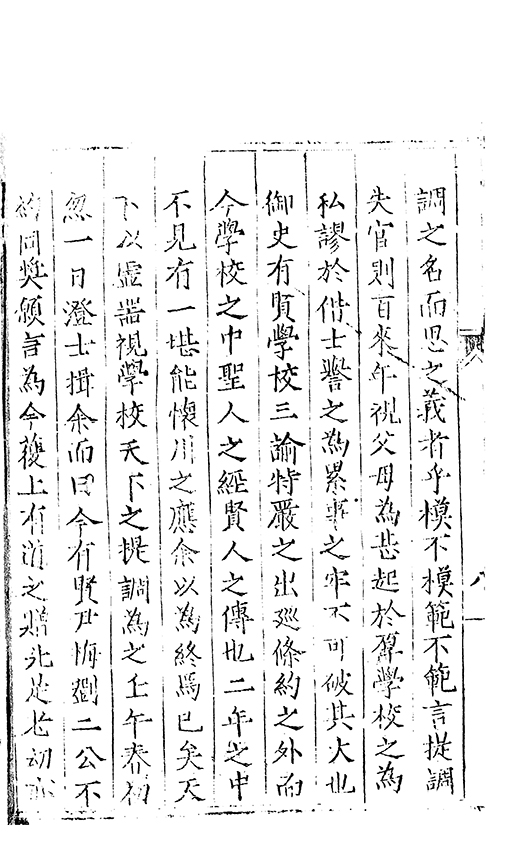 調之名而思之義者乎模不模範不範言提調
失官則百來年視父母為甚起於群學校之為
私謬於偕士譽之為累事之牢不可破其大也
御史有賢學校三論特嚴之出廵條約之外而
今學校之中聖人之經賢人之傳也二年之中
不見有一堪能懷川之應余以為終焉已矣天
下以虛器視學校天下之提調為之上午春初
忽一日澄士揖余而曰今有賢尹梅劉二公不
同奬願言為今獲上有道之